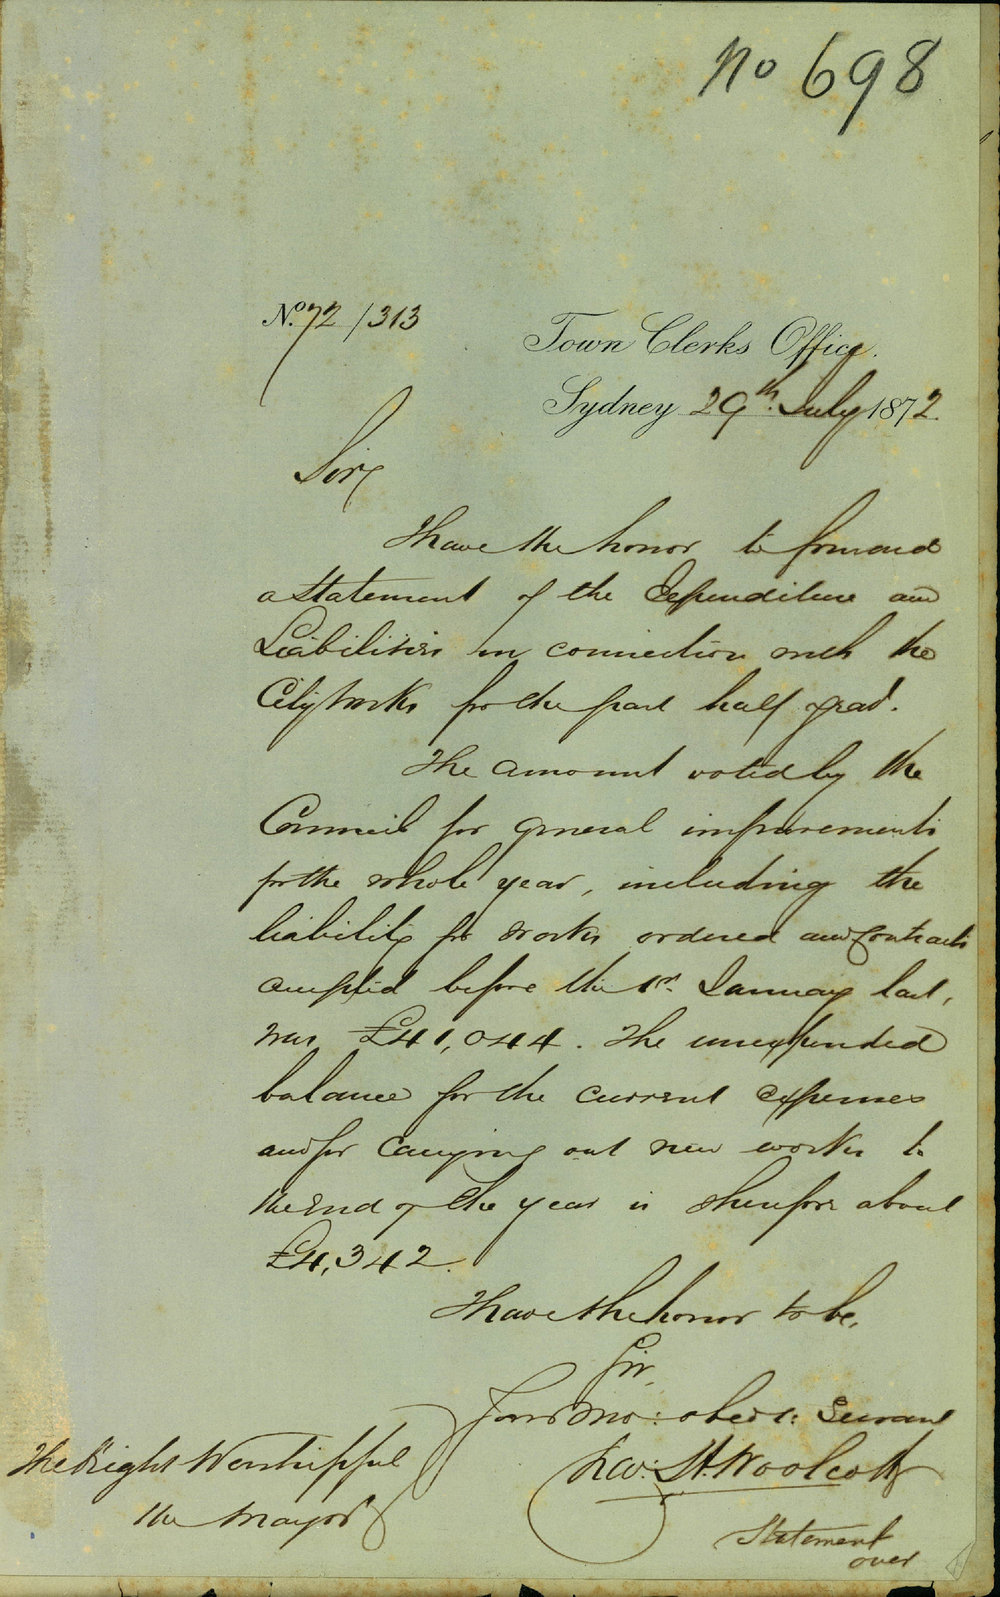 No 698
No. 72/313
Town Clerks Office.
Sydney 29th. July 1872.
Sir
I have the honor to forward
a Statement of the Expenditure and
Liabilities in connection with the
City Works for the past half year.
The amount voted by the
Council for general improvements
for the whole year, including the
liability for works ordered and Contracts
accepted before the 1st. January last,
was £41,044. The unexpended
balance for the current expenses
and for carrying out new works to
the end of the year is therefore about
£4,342.
I have the honor to be,
Sir,
Your mo: obedt: Servant
Chas: H. Woolcott
The Right Worshipful
the Mayor
Statement
over